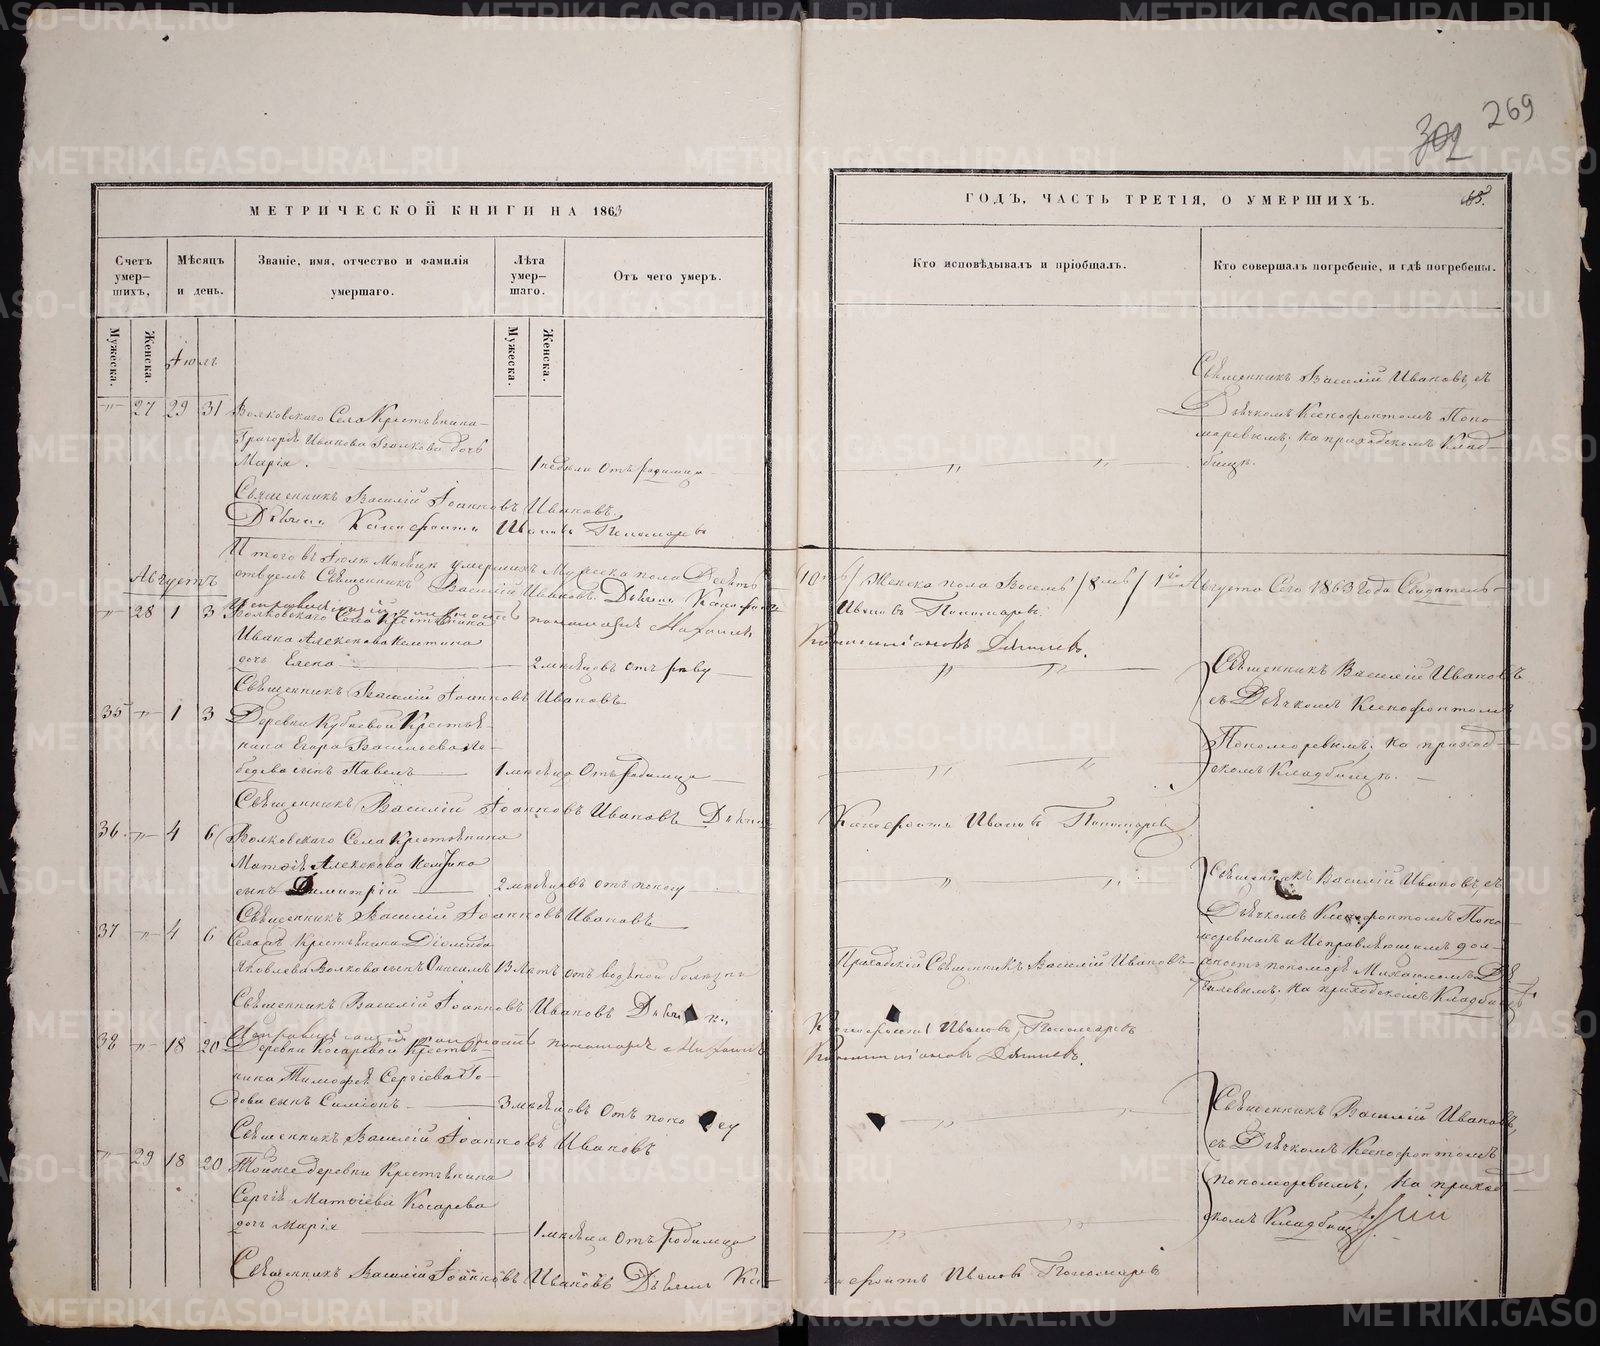 269
302
МЕТРИЧЕСКОЙ КНИГИ НА 1863
ГОДЪ, ЧАСТЬ ТРЕТІЯ, О УМЕРШИХЪ.
Счетъ умер-шихъ,
Мѣсяцъ и день.
Званіе, имя, отчество и фамилія умершаго.
Лѣта умер-шаго.
Отъ чего умеръ.
Кто исповѣдывалъ и пріобщалъ.
Кто совершалъ погребеніе, и гдѣ погребены.
Мужеска.
Женска.
Мужеска.
Женска.
Іюль
27 29 31 Волковскаго Села Крестьянина
Григорія Иванова Волкова дочь
Марія. 1 недѣли Отъ родимца
Священникъ Василій Ивановъ, съ
Дьячкомъ Ксенофонтомъ Поно-
маревымъ; на приходскомъ Клад-
бищѣ.
Священникъ Василій Іоанновъ Ивановъ.
Дьячекъ Ксенофонтъ Ивановъ Пономаревъ
Итого въ Іюлѣ Мѣсяцѣ умершихъ Мужеска пола Десять /10ть/ Женска пола Восемь /8мь/ 1го Августа Сего 1863 Года Свидѣтель-
ствуемъ Священникъ Василій Ивановъ. Дьячекъ Ксенофонтъ Ивановъ Пономаревъ
Августъ
Исправляющій должность пономаря Михаилъ
28 1 3 Волковскаго Села Крестьянина
Ивана Алексѣева
дочь Елена 2 мѣсяцовъ отъ
Священникъ Василій Іоанновъ Ивановъ
Священникъ Василій Ивановъ
съ Дьячкомъ Ксенофонтомъ
Пономаревымъ; на приход-
скомъ Кладбищѣ.
35 1 3 Деревни Кубаевой Крестья-
нина Егора Васильева
сынъ Павелъ 1 мѣсяца Отъ родимца
Священникъ Василій Іоанновъ Ивановъ Дьячекъ Ксенофонтъ Ивановъ Пономаревъ
36 4 6 Волковскаго Села Крестьянина
Матвѣя Алексѣева
сынъ Димитрій 2 мѣсяцовъ отъ поносу
Священникъ Василій Іоанновъ Ивановъ
Священникъ Василій Ивановъ, съ
Дьячкомъ Ксенофонтомъ Поно-
маревымъ и Исправляющимъ дол-
жность пономаря Михаиломъ
на приходскомъ Кладбищѣ.
37 4 6 Села Крестьянина Діомида
Яковлева Волкова сынъ Онисимъ 13 лѣтъ отъ водяной болѣзни
Приходскій Священникъ Василій Ивановъ
Священникъ Василій Іоанновъ Ивановъ Дьячекъ
Ксенофонтъ Ивановъ Пономаревъ
Исправляющій должность пономаря Михаилъ
32 18 20 Деревни Косаревой Крестья-
нина Тимофѣя Сергіева
сынъ Симіонъ 3 мѣсяцовъ Отъ поносу
Священникъ Василій Іоанновъ Ивановъ
Священникъ Василій Ивановъ,
съ Дьячкомъ Ксенофонтомъ
пономаревымъ; на приход-
скомъ Кладбищѣ
29 18 20 Тойже деревни Крестьянина
Сергія Матвіева Косарева
дочь Марія 1 мѣсяца Отъ родимца
Священникъ Василій Іоанновъ Ивановъ Дьячекъ Ксенофонтъ Ивановъ Пономаревъ
METRIKI.GASO-URAL.RU